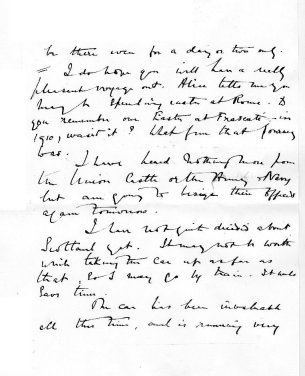 be there even for a day or two only.
= I do hope you will have a really
pleasant voyage out. Alice tells me you
may be spending easter at Rome. D
you remember our Easter at Frascati in
1910, was it? What fun that
was.
I have heard nothing more from
the Union Castle or the Army & Navy
but am going to besiege their offices
again tomorrow.
I have not quite decided about
Scotland yet. It may not be worth
while taking the car up as far as
that, so I may go by train. It will
save time.
The car has been invaluable
all this time, and is running very